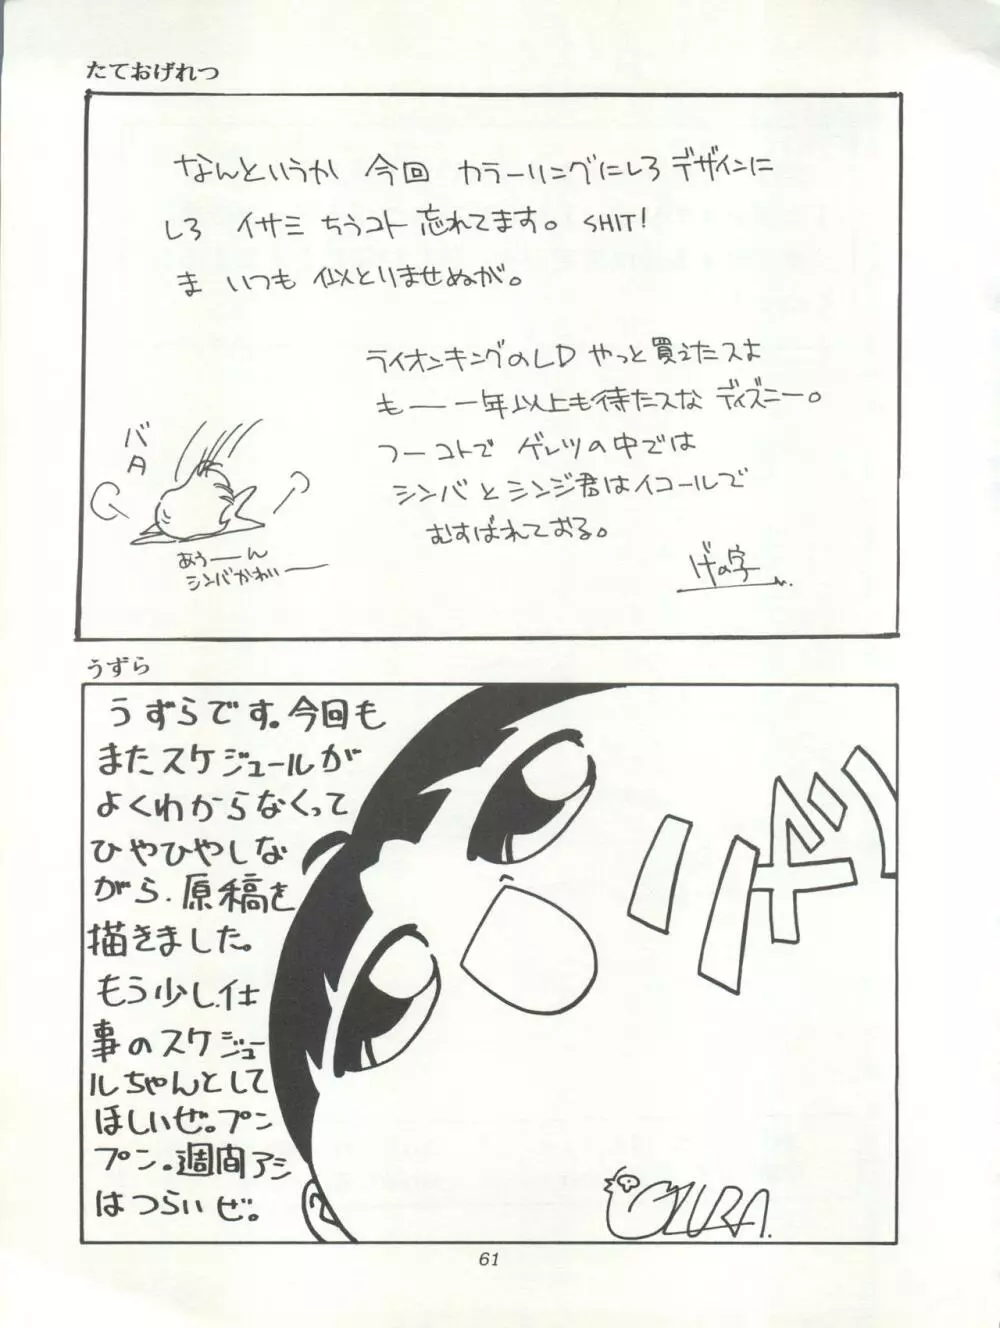 たておげれつ
なんというか 今回 カラーリングにしろ デザインに
しろ イサミ ちうコト 忘れてます。SHIT!
ま いつも 似とりませぬが。
ライオンキングのLD やっと買えたスよ
もー 一年以上も待たスな ディズニー。
つーコトで ゲレツの中では
シンバ と シンジ君はイコールで
むすばれておる。
げの字
バタ
あぅーん
シンバかわいー
うずら
うずらです。今回も
またスケジュールが
よくわからなくって
ひやひやしな
がら、原稿を
描きました。
もう少し、仕
事のスケジュー
ルちゃんとして
ほしいぜ。プン
プン。週間アシ
はつらいぜ。
OZURA.
61